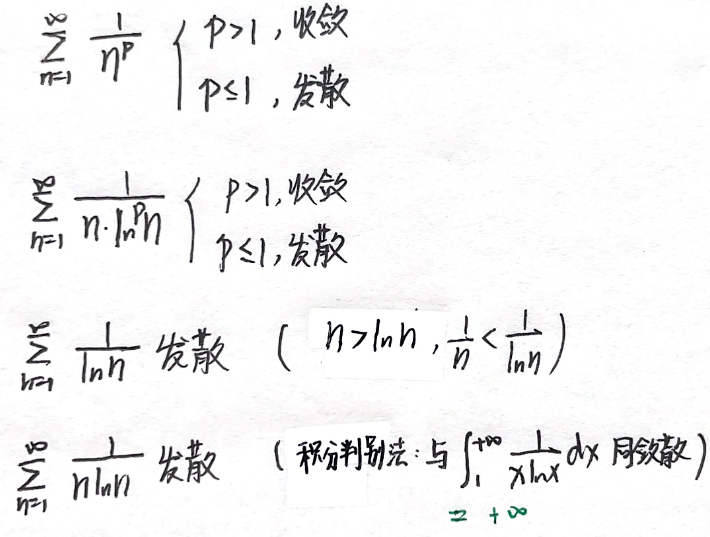 ∑_{n=1}^{∞} 1/n^p { p>1, 收敛
p≤1, 发散
∑_{n=1}^{∞} 1/(n·ln^p n) { p>1, 收敛
p≤1, 发散
∑_{n=1}^{∞} 1/ln n 发散 ( n>ln n, 1/n < 1/ln n )
∑_{n=1}^{∞} 1/(n ln n) 发散 ( 积分判别法: 与 ∫_1^{+∞} 1/(x ln x) dx 同敛散 )
= +∞